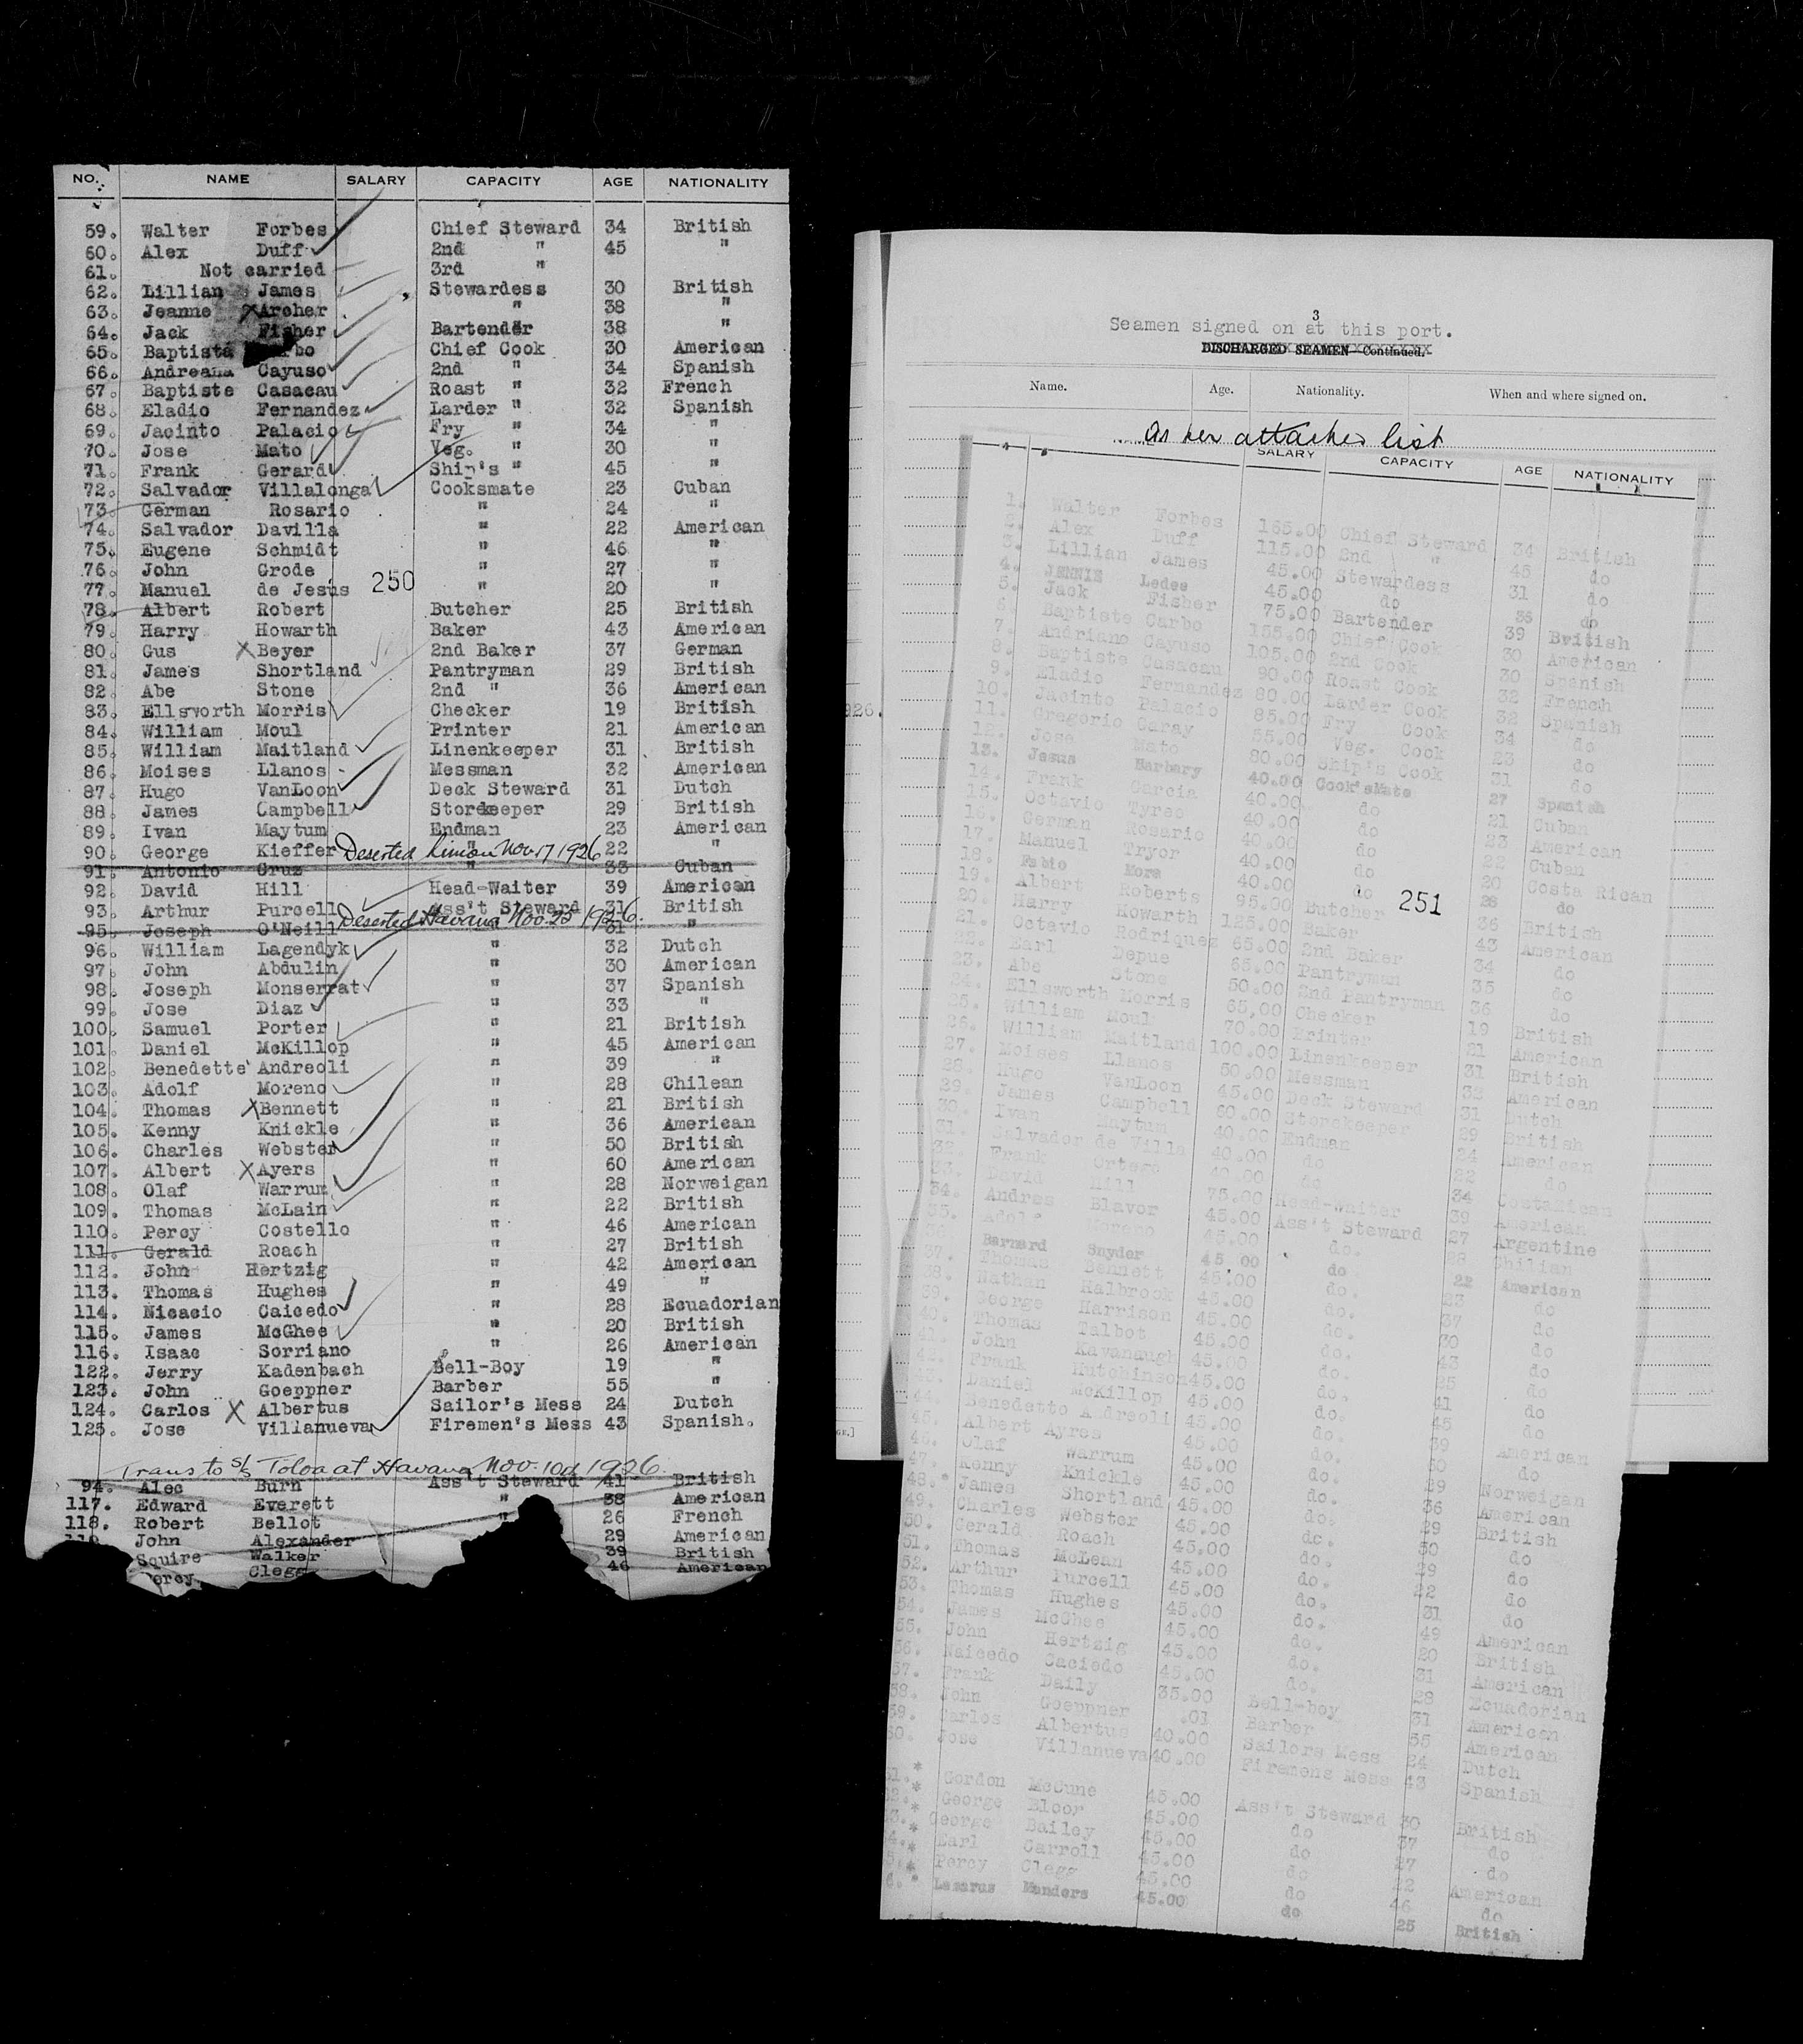 NO. NAME SALARY CAPACITY AGE NATIONALITY
59. Walter Forbes Chief Steward 34 British
60. Alex Duff 2nd " 45 "
61. Not carried 3rd "
62. Lillian James Stewardess 30 British
63. Jeanne Archer " 38 "
64. Jack Fisher Bartender 38 "
65. Baptista Chief Cook 30 American
66. Andreana Cayuso 2nd " 34 Spanish
67. Baptiste Casacau Roast " 32 French
68. Eladio Fernandez Larder " 32 Spanish
69. Jacinto Palacio Fry " 34 "
70. Jose Mato Veg. " 30 "
71. Frank Gerard Ship's " 45 "
72. Salvador Villalonga Cooksmate 23 Cuban
73. German Rosario " 24 "
74. Salvador Davilla " 22 American
75. Eugene Schmidt " 46 "
76. John Grode " 27 "
77. Manuel de Jesus 250 " 20 "
78. Albert Robert Butcher 25 British
79. Harry Howarth Baker 43 American
80. Gus X Beyer 2nd Baker 37 German
81. James Shortland Pantryman 29 British
82. Abe Stone 2nd " 36 American
83. Ellsworth Morris Checker 19 British
84. William Moul Printer 21 American
85. William Maitland Linenkeeper 31 British
86. Moises Llanos Messman 32 American
87. Hugo VanLoon Deck Steward 31 Dutch
88. James Campbell Storekeeper 29 British
89. Ivan Maytum Endman 23 American
90. George Kieffer " 22 "
Deserted Limon Nov. 17 1926
91. Antonio Cruz " 33 Cuban
92. David Hill Head-Waiter 39 American
93. Arthur Purcell Ass't Steward 31 British
Deserted Havana Nov. 25 1926.
95. Joseph O'Neill 31 "
96. William Lagendyk " 32 Dutch
97. John Abdulin " 30 American
98. Joseph Monserrat " 37 Spanish
99. Jose Diaz " 33 "
100. Samuel Porter " 21 British
101. Daniel McKillop " 45 American
102. Benedette Andreoli " 39 "
103. Adolf Moreno " 28 Chilean
104. Thomas X Bennett " 21 British
105. Kenny Knickle " 36 American
106. Charles Webster " 50 British
107. Albert X Ayers " 60 American
108. Olaf Warrum " 28 Norweigan
109. Thomas McLain " 22 British
110. Percy Costello " 46 American
111. Gerald Roach " 27 British
112. John Hertzig " 42 American
113. Thomas Hughes " 49 "
114. Nicacio Caicedo " 28 Ecuadorian
115. James McGhee " 20 British
116. Isaac Sorriano " 26 American
122. Jerry Kadenbach Bell-Boy 19 "
123. John Goeppner Barber 55 "
124. Carlos X Albertus Sailor's Mess 24 Dutch
125. Jose Villanueva Firemen's Mess 43 Spanish.
Trans to S/S Toloa at Havana Nov. 10th 1926.
94. Alec Burn Ass't Steward 41 British
117. Edward Everett " 38 American
118. Robert Bellot " 26 French
John Alexander 29 American
Squire Walker 39 British
Clegg 46 American
3
Seamen signed on at this port.
DISCHARGED SEAMEN—Continued.
Name. Age. Nationality. When and where signed on.
As per attached list
SALARY CAPACITY AGE NATIONALITY
1. Walter Forbes 165.00 Chief Steward 34 British
2. Alex Duff 115.00 2nd " 45 do
3. Lillian James 45.00 Stewardess 31 do
4. JENNIE Ledee 45.00 do 35 do
5. Jack Fisher 75.00 Bartender 39 British
6. Baptiste Carbo 155.00 Chief Cook 30 American
7. Andriano Cayuso 105.00 2nd Cook 30 Spanish
8. Baptiste Casacau 90.00 Roast Cook 32 French
9. Eladio Fernandez 80.00 Larder Cook 32 Spanish
10. Jacinto Palacio 85.00 Fry Cook 34 do
11. Gregorio Garay 55.00 Veg. Cook 23 do
12. Jose Mato 80.00 Ship's Cook 31 do
13. Jesus Harbary 40.00 Cook'sMate 27 Spanish
14. Frank Garcia 40.00 do 21 Cuban
15. Octavio Tyreo 40.00 do 23 American
16. German Rosario 40.00 do 22 Cuban
17. Manuel Tryor 40.00 do 20 Costa Rican
18. Pablo Mora 40.00 do 28 do
251
19. Albert Roberts 95.00 Butcher 36 British
20. Harry Howarth 125.00 Baker 43 American
21. Octavio Rodriquez 65.00 2nd Baker 34 do
22. Earl Depue 65.00 Pantryman 35 do
23. Abe Stone 50.00 2nd Pantryman 36 do
24. Ellsworth Morris 65,00 Checker 19 British
25. William Moul 70.00 Printer 21 American
26. William Maitland 100.00 Linenkeeper 31 British
27. Moises Llanos 50.00 Messman 32 American
28. Hugo VanLoon 45.00 Deck Steward 31 Dutch
29. James Campbell 60.00 Storekeeper 29 British
30. Ivan Maytum 40.00 Endman 24 American
31. Salvador de Villa 40.00 do 22 do
32. Frank Ortego .00 do 34 Costarican
33. David Hill 75.00 Head-Waiter 39 American
34. Andres Blavor 45.00 Ass't Steward 27 Argentine
35. 45.00 do. 28 Chilian
Bernard Snyder 45.00 do 22 American
37. Thomas Bennett 45.00 do. 23 do
38. Nathan Kalbrook 45.00 do. 37 do
39. George Harrison 45.00 do. 30 do
40. Thomas Talbot 45.00 do. 43 do
41. John Kavanaugh 45.00 do. 25 do
Frank Hutchinson 45.00 do. 41 do
Daniel McKillop 45.00 do. 45 do
44. Benedetto Andreoli 45.00 do. 39 American
45. Albert Ayres 45.00 do. 60 do
46. Olaf Warrum 45.00 do. 29 Norweigan
47. Kenny Knickle 45.00 do. 36 American
48. James Shortland 45.00 do. 29 British
49. Charles Webster 45.00 do. 50 do
50. Gerald Roach 45.00 do. 29 do
51. Thomas McLean 45.00 do. 22 do
52. Arthur Purcell 45.00 do. 31 do
53. Thomas Hughes 45.00 do. 49 American
54. James McGhee 45.00 do. 20 British
55. John Hertzig 45.00 do. 31 American
56. Naicedo Caciedo 45.00 do. 28 Ecuadorian
57. Frank Daily 35.00 Bell-boy 31 American
58. John Goeppner .01 Barber 55 American
59. Carlos Albertus 40.00 Sailors Mess 24 Dutch
60. Jose Villanueva 40.00 Firemens Mess 43 Spanish
* Gordon McCune 45.00 Ass't Steward 30 British
* George Bloor 45.00 do 37 do
* George Bailey 45.00 do 27 do
* Earl Carroll 45.00 do 22 American
* Percy Clegg 45.00 do 46 do
* Lazarus Manders 45.00 do 25 British
926.